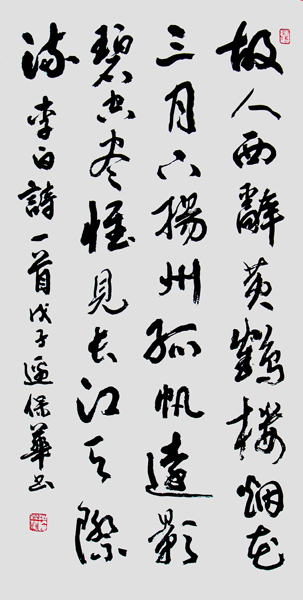 故人西辭黄鶴樓烟花
三月下揚州孤帆遠影
碧空尽惟見長江天際
流 李白詩一首戊子保華书